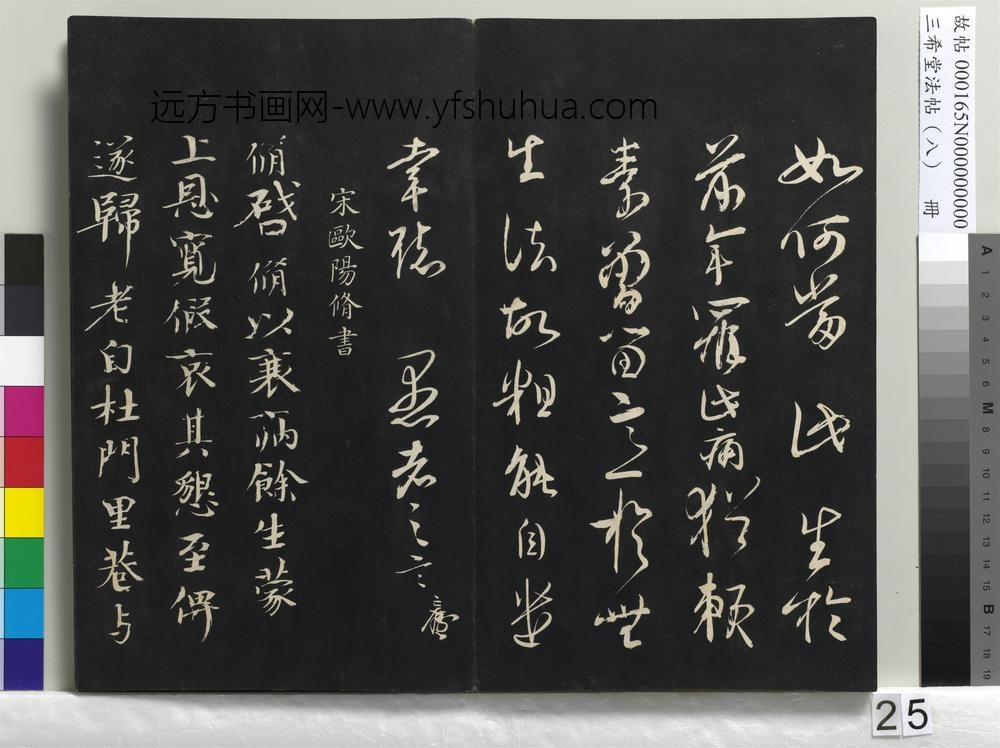 远方书画网-www.yfshuhua.com
如何當此 生於
前年罹此痛猶賴
素曾留意於無
生法故粗能自遣
幸聽 愚老之言
宋歐陽脩書
脩啓脩以衰病餘生蒙
上恩寬假哀其懇至俾
遂歸老自杜門里巷与
故帖 000165N000000000
三希堂法帖(八) 冊
25
A 1 2 3 4 5 6 M 8 9 10 11 12 13 14 15 B 17 18 19